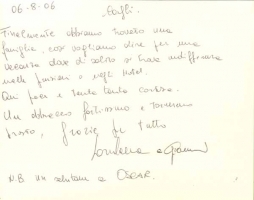 06-8-06
Finalmente abbiamo trovato una
famiglia, così vogliamo dire per una
vacanza dove di solito si trova indifferenza
nelle pensioni o negli Hotel.
Qui pace e tanta tanta cortesia.
Un abbraccio fortissimo e torneremo
presto, Grazie di tutto
Loredana e Gianni
N.B. un salutone a OSCAR.